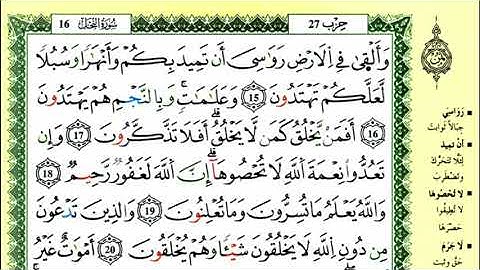 16 سُورَةُ النَّحْل
حِزْب 27
وَأَلْقَىٰ فِے اِلَارْضِ رَوَٰسِيَ أَن تَمِيدَ بِكُمْ وَأَنْهَٰراٗ وَسُبُلاٗ
لَّعَلَّكُمْ تَهْتَدُونَ 15 وَعَلَٰمَٰتٖ وَبِالنَّجْمِ هُمْ يَهْتَدُونَ
16 أَفَمَنْ يَّخْلُقُ كَمَن لَّا يَخْلُقُ أَفَلَا تَذَّكَّرُونَ 17 وَإِن
تَعُدُّواْ نِعْمَةَ اَللَّهِ لَا تُحْصُوهَا إِنَّ اَللَّهَ لَغَفُورٌ رَّحِيمٌ 18
وَاللَّهُ يَعْلَمُ مَا تُسِرُّونَ وَمَا تُعْلِنُونَ 19 وَالذِينَ تَدْعُونَ
مِن دُونِ اِللَّهِ لَا يَخْلُقُونَ شَيْـٔاٗ وَهُمْ يُخْلَقُونَ 20 أَمْوَٰتٌ غَيْرُ
رَوَاسِيَ
جِبَالاً ثَوَابِتَ
أَنْ تَمِيدَ
لِئَلَّا تَتَحَرَّكَ
وَتَضْطَرِبَ
لَا تُحْصُوهَا
لَا تُطِيقُوا
حَصْرَهَا
لَا جَرَمَ
حَقَّ وَثَبَتَ